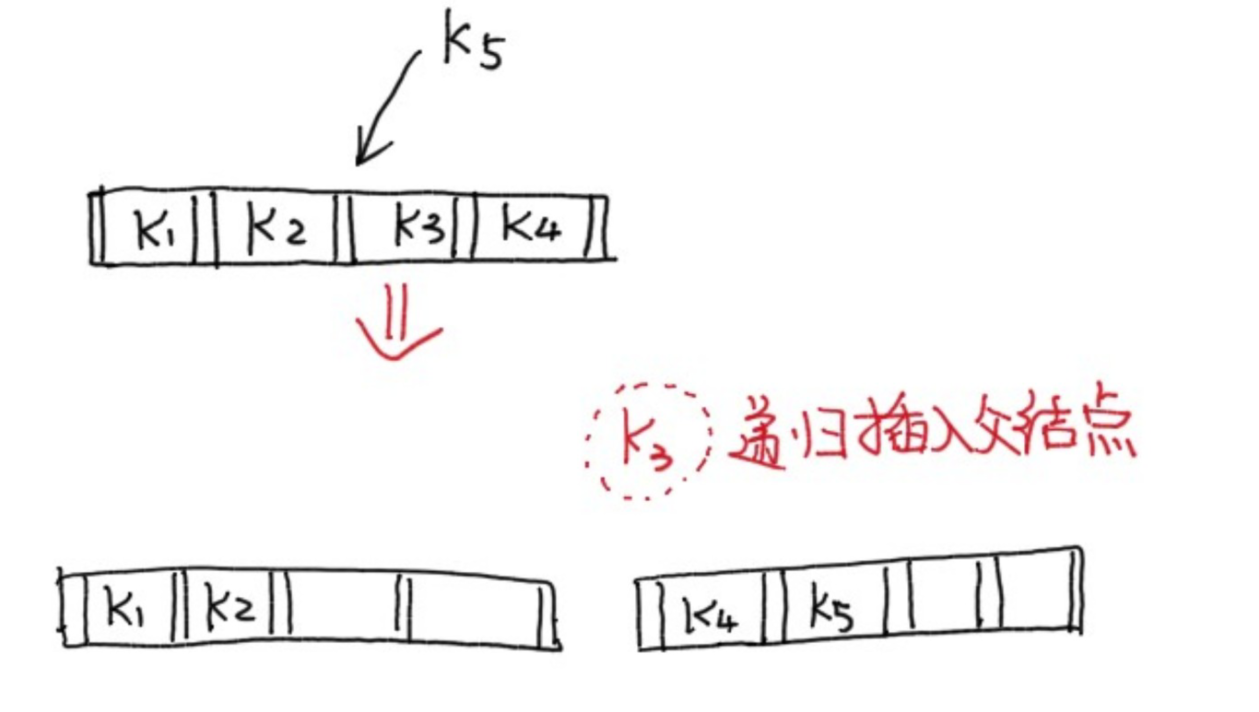 K5
K1 K2 K3 K4
K3 递归插入父结点
K1 K2
K4 K5